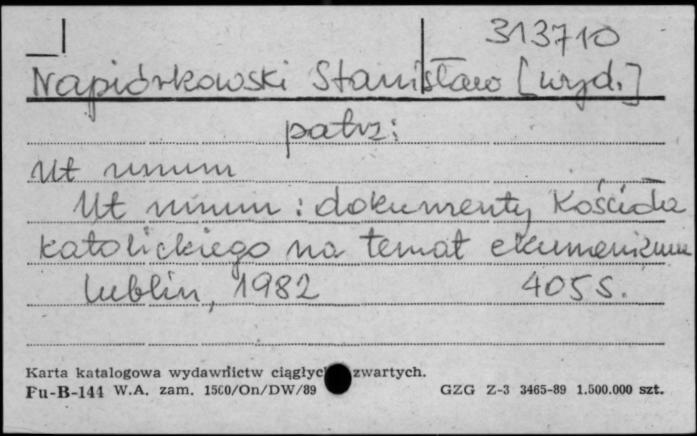 313710
Napiórkowski Stanisław [wyd.]
patrz:
Ut unum
Ut unum : dokumenty Kościoła
katolickiego na temat ekumenizmu
Lublin, 1982 405 s.
Karta katalogowa wydawnictw ciągłyc zwartych.
Fu-B-144 W.A. zam. 1500/On/DW/89 GZG Z-3 3465-89 1.500.000 szt.